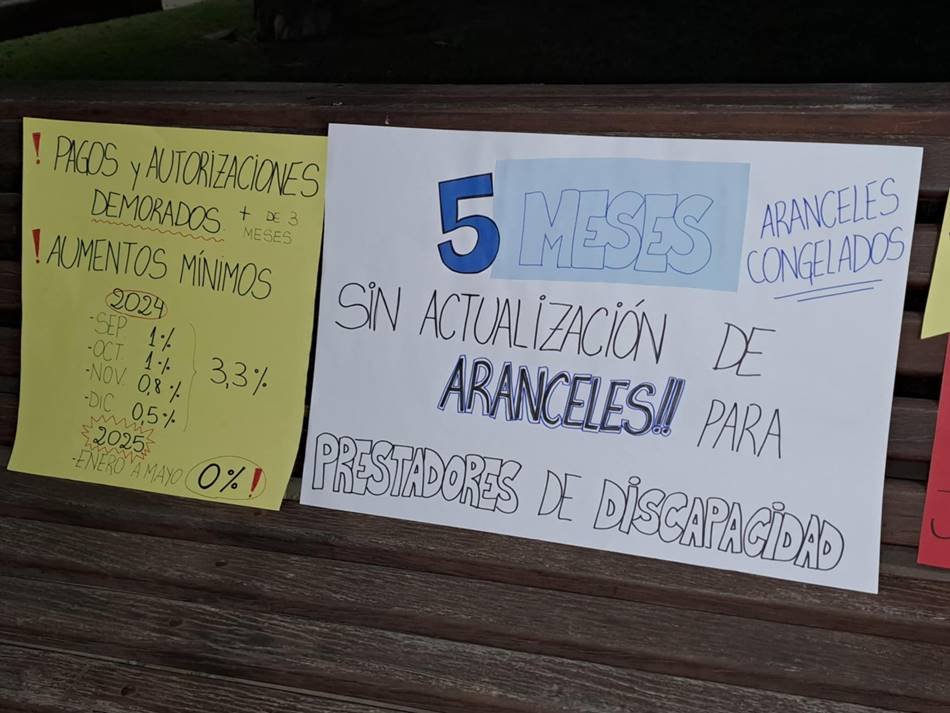 ! PAGOS y AUTORIZACIONES
DEMORADOS + DE 3
MESES
! AUMENTOS MÍNIMOS
2024
- SEP 1%
- OCT 1%
- NOV. 0,8%
- DIC 0,5%
3,3%
2025
- ENERO A MAYO 0%!
5 MESES
ARANCELES
CONGELADOS
SIN ACTUALIZACIÓN DE
ARANCELES!! PARA
PRESTADORES DE DISCAPACIDAD